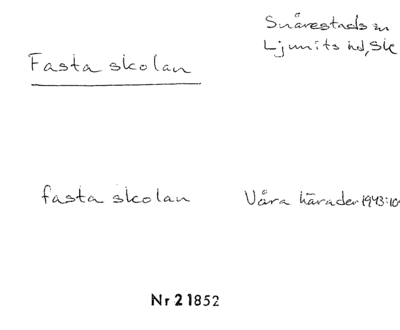 Snårestads sn
Ljunits hd, Sk
Fasta skolan
fasta skolan Våra härader 1943:10
Nr 21852